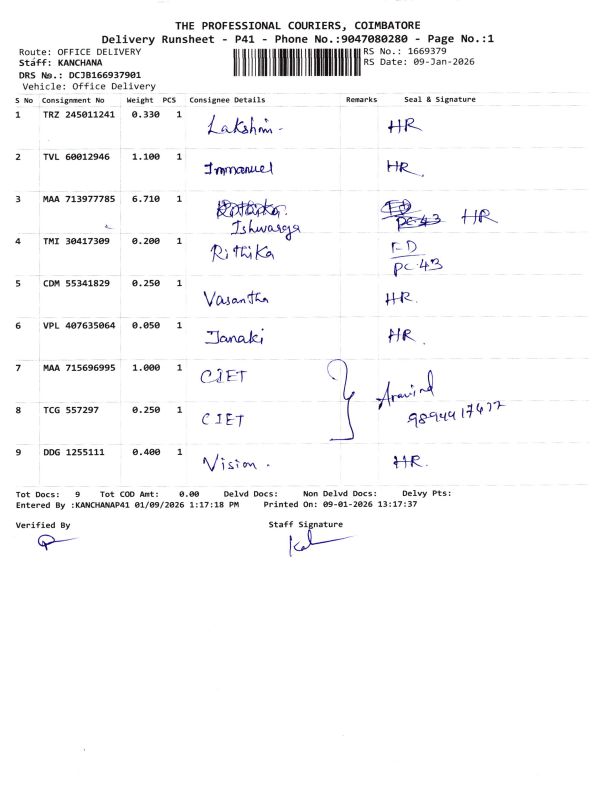 THE PROFESSIONAL COURIERS, COIMBATORE
Delivery Runsheet - P41 - Phone No.:9047080280 - Page No.:1
Route: OFFICE DELIVERY RS No.: 1669379
Staff: KANCHANA RS Date: 09-Jan-2026
DRS No.: DCJB166937901
Vehicle: Office Delivery
S No Consignment No Weight PCS Consignee Details Remarks Seal & Signature
1 TRZ 245011241 0.330 1 Lakshmi - HR
2 TVL 60012946 1.100 1 Immanuel HR.
3 MAA 713977785 6.710 1 PC-43 HR
4 TMI 30417309 0.200 1 Rithika FD
PC-43
5 CDM 55341829 0.250 1 Vasantha HR.
6 VPL 407635064 0.050 1 Janaki HR.
7 MAA 715696995 1.000 1 CIET
Aravind
8 TCG 557297 0.250 1 CIET
9 DDG 1255111 0.400 1 Vision. HR.
Tot Docs: 9 Tot COD Amt: 0.00 Delvd Docs: Non Delvd Docs: Delvy Pts:
Entered By :KANCHANAP41 01/09/2026 1:17:18 PM Printed On: 09-01-2026 13:17:37
Verified By Staff Signature